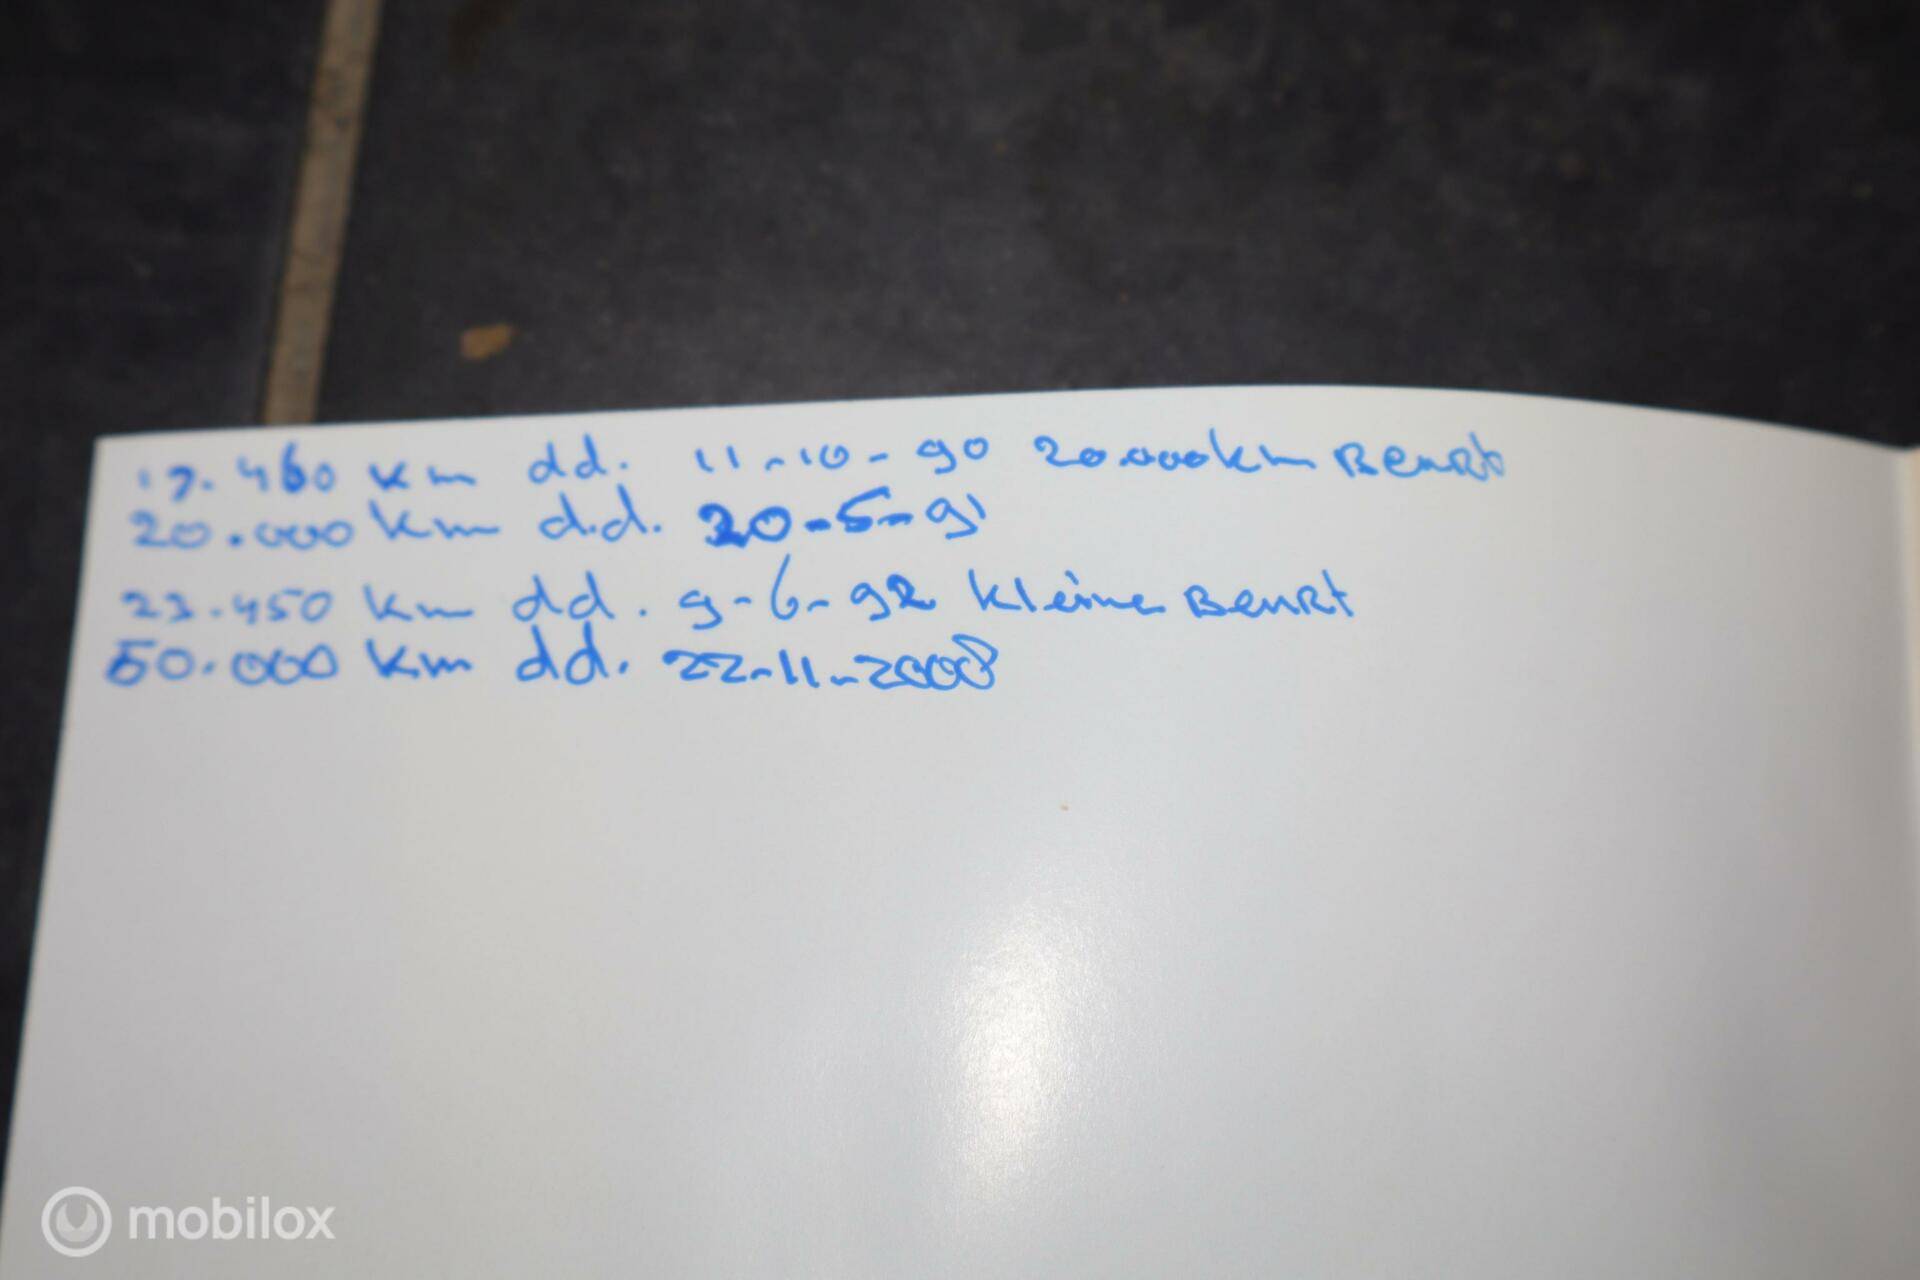 17.460 km dd. 11-10-90 20.000km Beurt
20.000 km d.d. 20-5-91
23.450 km dd. 9-6-92 kleine Beurt
50.000 km dd. 22-11-2008
mobilox